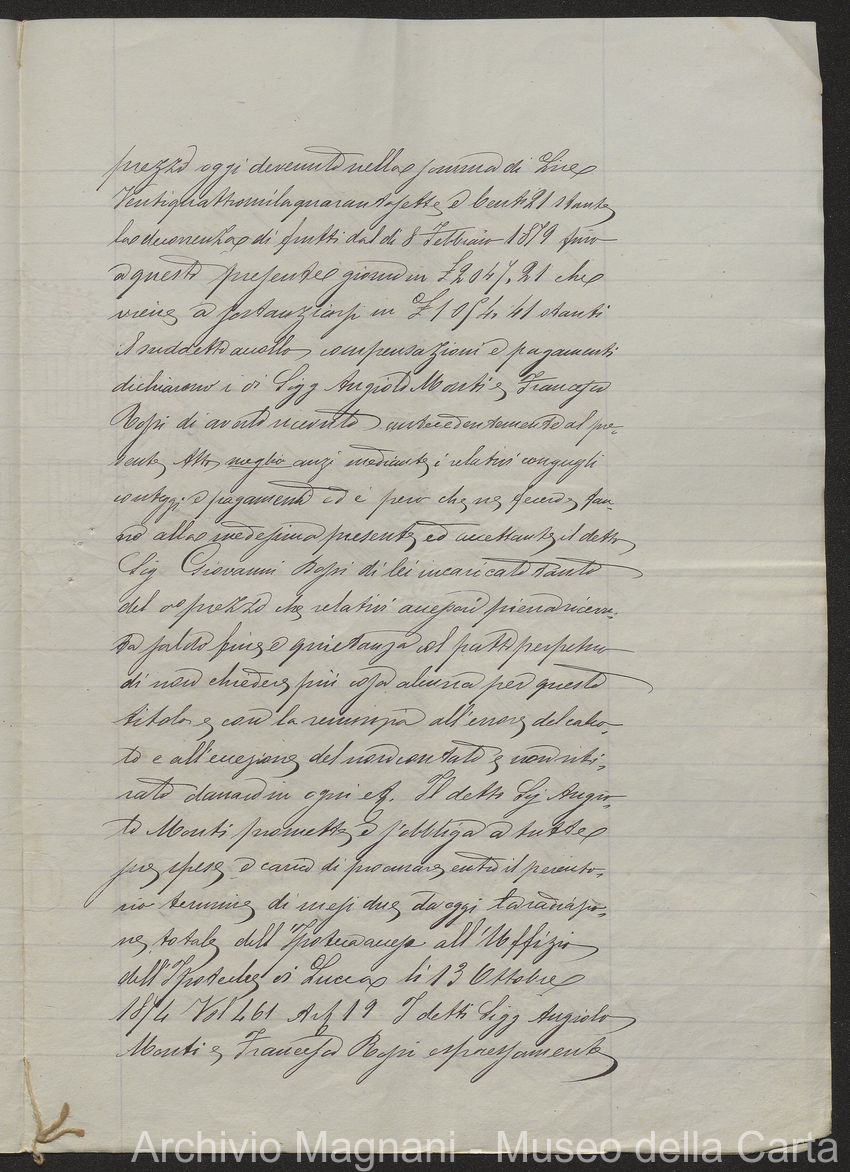 prezzo oggi devenuto nella somma di Lire
Ventiquattromilaquarantasette e Centi 21 stante
la decorrenza di frutti dal dì 8 Febbraio 1879 fino
a questo presente giorno in £ 2047.21 che
viene a in £ 1054.41 stanti
il suddetto accollo, compensazioni e pagamenti
dichiarono i Sigg Angiolo Monti e Francesco
Rossi di averlo ricevuto antecedentemente al pre-
sente Atto meglio anzi mediante i relativi conguagli
conteggi e pagamenti ed è però che ne fecero e fan-
no alla medesima presente ed accettante il detto
Sig Giovanni Rossi di lei incaricato tanto
del prezzo che relativi accessori piena ricevu-
ta saldo fine e quietanza col patto perpetuo
di non chiedere più cosa alcuna per questo
titolo e con la renunzia all'errore del calco-
lo e all'eccezione del non contato e non riti-
rato danaro in ogni Il detto Sig Angio-
lo Monti promette e s'obbliga a tutte
sue spese e cura di procurare entro il perento-
rio termine di mesi due da oggi la radiazio-
ne totale dell'Ipoteca accesa all'Uffizio
dell'Ipoteche di Lucca li 13 Ottobre
1874 Vol 461 Art 19 I detti Sigg Angiolo
Monti e Francesco Rossi espressamente
Archivio Magnani - Museo della Carta